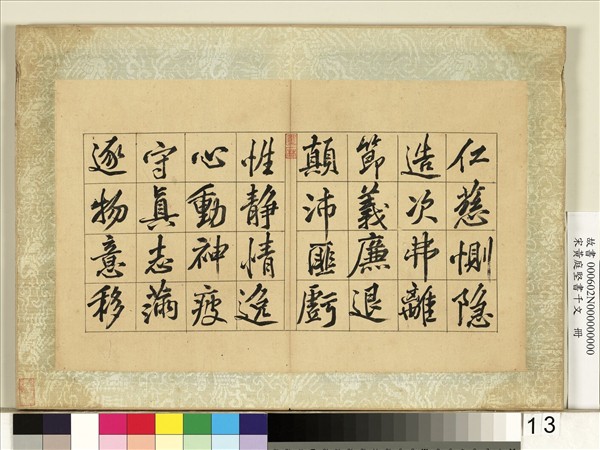 仁慈惻隐
造次弗離
節義廉退
顛沛匪虧
性静情逸
心動神疲
守眞志滿
逐物意移
故書 000602N000000000
宋黃庭堅書千文 冊
13